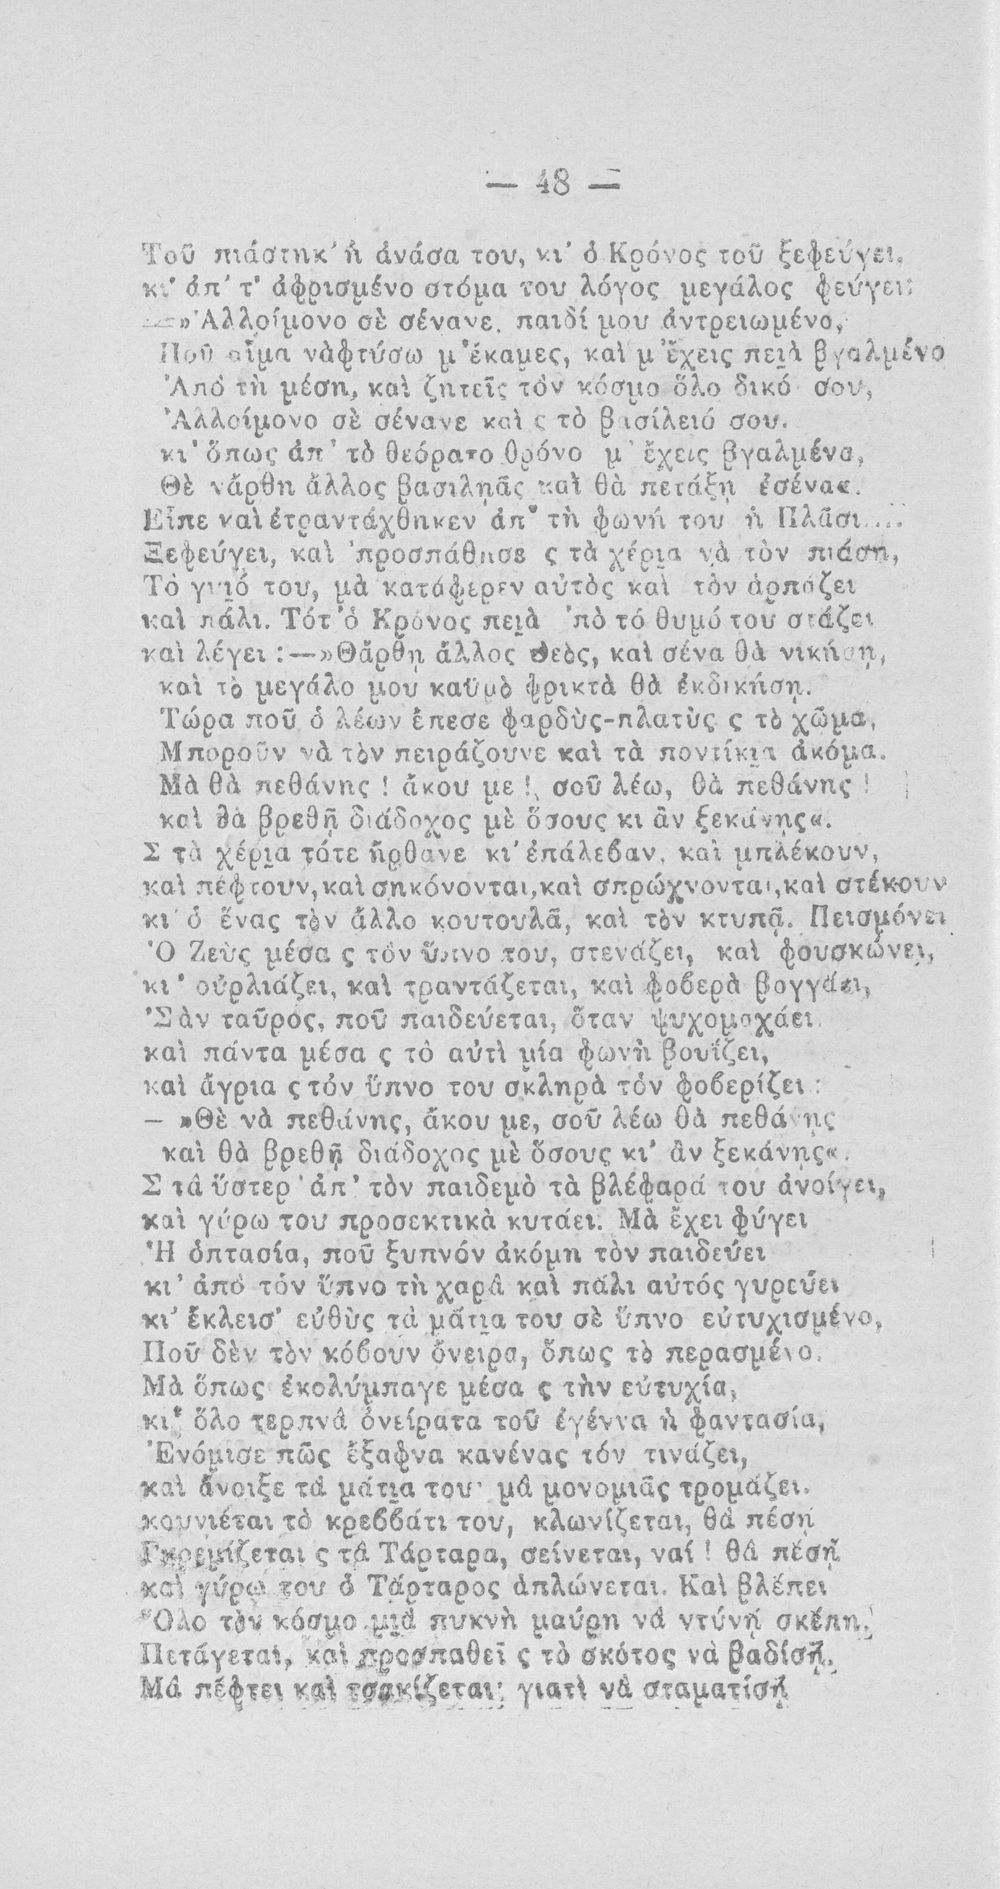 — 48 —
Τοῦ πιάστηκ' ἡ ἀνάσα του, κι' ὁ Κρόνος τοῦ ξεφεύγει,
κι' ἀπ' τ' ἀφρισμένο στόμα του λόγος μεγάλος φεύγει:
—»'Αλλοίμονο σὲ σένανε, παιδί μου ἀντρειωμένο,
Ποῦ αἷμα νὰφτύσω μ' ἔκαμες, καὶ μ' ἔχεις πειὰ βγαλμένο
'Απὸ τὴ μέση, καὶ ζητεῖς τὸν κόσμο ὅλο δικό σου,
'Αλλοίμονο σὲ σένανε καὶ ς τὸ βασίλειό σου.
κι' ὅπως ἀπ' τὸ θεόρατο θρόνο μ' ἔχεις βγαλμένα,
Θὲ νἄρθη ἄλλος βασιληᾶς καὶ θὰ πετάξῃ ἐσένα«.
Εἶπε καὶ ἐτραντάχθηκεν ἀπ' τὴ φωνή του ἡ Πλᾶσι....
Ξεφεύγει, καὶ 'προσπάθησε ς τὰ χέρια νὰ τὸν πιάσῃ,
Τὸ γυιό του, μὰ κατάφερεν αὐτὸς καὶ τὸν ἁρπάζει
καὶ πάλι. Τότ' ὁ Κρόνος πειὰ 'πὸ τὸ θυμό του στάζει
καὶ λέγει :—»Θἄρθῃ ἄλλος Θεὸς, καὶ σένα θὰ νικήσῃ,
καὶ τὸ μεγάλο μου καϋμὸ φρικτὰ θὰ ἐκδικήσῃ.
Τώρα ποῦ ὁ λέων ἔπεσε φαρδὺς-πλατὺς ς τὸ χῶμα,
Μποροῦν νὰ τὸν πειράζουνε καὶ τὰ ποντίκια ἀκόμα.
Μὰ θὰ πεθάνης ! ἄκου με !, σοῦ λέω, θὰ πεθάνης !
καὶ θὰ βρεθῇ διάδοχος μὲ ὅσους κι ἂν ξεκάνης«.
Σ τὰ χέρια τότε ἤρθανε κι' ἐπάλεβαν, καὶ μπλέκουν,
καὶ πέφτουν, καὶ σηκόνονται, καὶ σπρώχνονται, καὶ στέκουν
κι' ὁ ἕνας τὸν ἄλλο κουτουλᾶ, καὶ τὸν κτυπᾷ. Πεισμόνει
'Ο Ζεὺς μέσα ς τὸν ὕπνο του, στενάζει, καὶ φουσκώνει,
κι' οὐρλιάζει, καὶ τραντάζεται, καὶ φοβερὰ βογγάει,
'Σὰν ταῦρος, ποῦ παιδεύεται, ὅταν ψυχομαχάει.
καὶ πάντα μέσα ς τὸ αὐτὶ μία φωνὴ βουΐζει,
καὶ ἄγρια ς τὸν ὕπνο του σκληρὰ τὸν φοβερίζει :
— »Θὲ νὰ πεθάνης, ἄκου με, σοῦ λέω θὰ πεθάνης
καὶ θὰ βρεθῇ διάδοχος μὲ ὅσους κι' ἂν ξεκάνης«.
Σ τὰ ὕστερ' ἀπ' τὸν παιδεμὸ τὰ βλέφαρά του ἀνοίγει,
καὶ γύρω του προσεκτικὰ κυτάει. Μὰ ἔχει φύγει
'Η ὀπτασία, ποῦ ξυπνόν ἀκόμη τὸν παιδεύει
κι' ἀπὸ τὸν ὕπνο τὴ χαρὰ καὶ πάλι αὐτός γυρεύει
κι' ἔκλεισ' εὐθὺς τὰ μάτια του σὲ ὕπνο εὐτυχισμένο,
Ποῦ δὲν τὸν κόβουν ὄνειρα, ὅπως τὸ περασμένο.
Μὰ ὅπως ἐκολύμπαγε μέσα ς τὴν εὐτυχία,
κι' ὅλο τερπνὰ ὀνείρατα τοῦ ἐγέννα ἡ φαντασία,
'Ενόμισε πῶς ἔξαφνα κανένας τόν τινάζει,
καὶ ἄνοιξε τὰ μάτια του· μὰ μονομιᾶς τρομάζει.
κουνιέται τὸ κρεββάτι του, κλωνίζεται, θὰ πέσῃ
Γκρεμίζεται ς τὰ Τάρταρα, σείνεται, ναί ! θὰ πέσῃ
καὶ γύρω του ὁ Τάρταρος ἁπλώνεται. Καὶ βλέπει
'Όλο τὸν κόσμο μιὰ πυκνὴ μαύρη νὰ ντύνῃ σκέπη.
Πετάγεται, καὶ προσπαθεῖ ς τὸ σκότος νὰ βαδίσῃ,
Μὰ πέφτει καὶ τσακίζεται· γιατὶ νὰ σταματίσῃ